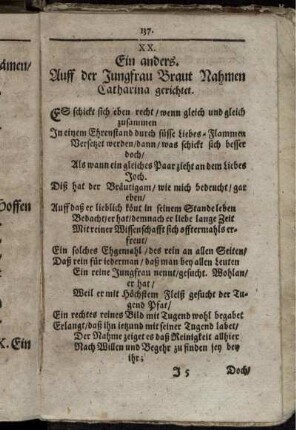 137.
XX.
Ein anders.
Auff der Jungfrau Braut Nahmen
Catharina gerichtet.
ES schickt sich eben recht / wenn gleich und gleich
zusammen
In einem Ehrenstand durch süsse Liebes-Flammen
Versetzet werden / dann / was schickt sich besser
doch /
Als wann ein gleiches Paar zieht an dem Liebes
Joch.
Diß hat der Bräutigam / wie mich bedeucht / gar
eben /
Auff daß er lieblich könt in seinem Stande leben
Bedacht / er hat / demnach er liebe lange Zeit
Mit reiner Wissenschafft sich offtermahls er-
freut /
Ein solches Ehgemahl / des rein an allen Seiten /
Daß rein für iederman / daß man bey allen Leuten
Ein reine Jungfrau nennt / gesucht. Wohlan /
er hat /
Weil er mit Höchstem Fleiß gesucht der Tu-
gend Pfat /
Ein rechtes reines Bild mit Tugend wohl begabet
Erlangt / daß ihn ietzund mit seiner Tugend labet /
Der Nahme zeiget es daß Reinigkeit allhier
Nach Willen und Begehr zu finden sey bey
ihr;
J 5 Doch /
ämen /
Hoffen
X. Ein